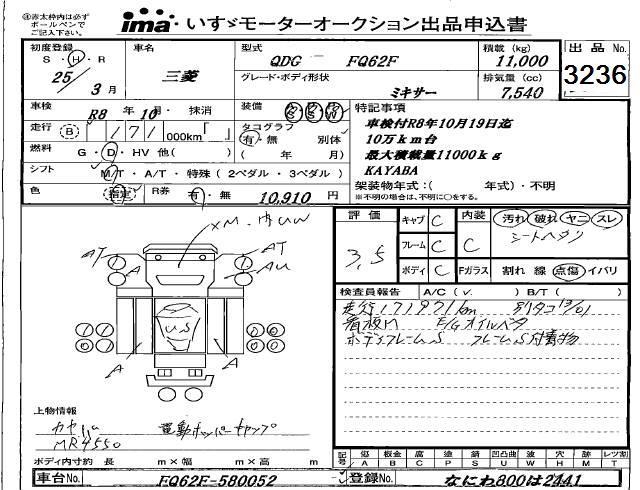 ※赤太枠内は必ず
ボールペンで
ご記入下さい。
ima いすゞモーターオークション出品申込書
初度登録 車名 型式 積載 (kg) 出品 No.
S・H・R 25 / 3 月 三菱 QDG - FQ62F 11,000
3236
グレード・ボディ形状 排気量 (cc)
ミキサー 7,540
車検 R8 年 10 月・ 抹消 装備 P S W 特記事項
走行 B 171 000km「 」 タコグラフ 有・無 別体
車検付R8年10月19日迄
10万km台
燃料 G・D・HV 他( ) ( 年 月)
最大積載量11000kg
シフト M/T・A/T・特殊(2ペダル・3ペダル)
KAYABA
架装物年式:( 年式)・不明
色 指定 R券 有・無 10,910 円
※不明の場合は、不明に○をする。
評価 キャブ C 内装 汚れ 破れ ヤニ スレ
3.5 フレーム C C シートヘタリ
ボディ C Fガラス 割れ 線 点傷 イバリ
AT AT
A AU
US
A A
検査員報告 A/C (v. ) B/T ( )
走行171971km
看板M E/Gオイルベタ
ボディフレームS フレームS付着物
上物情報
カヤバ 電動ホッパーキャップ
MR4550
ボディ内寸約 長 m×幅 m×高 m
記号 傷 A 板金 B 腐 C 凹 P サビ S 凹凸曲 U 波 W 穴 H 欠 M レツ割 T
車台No. FQ62F-580052 登録No. なにわ800は2441